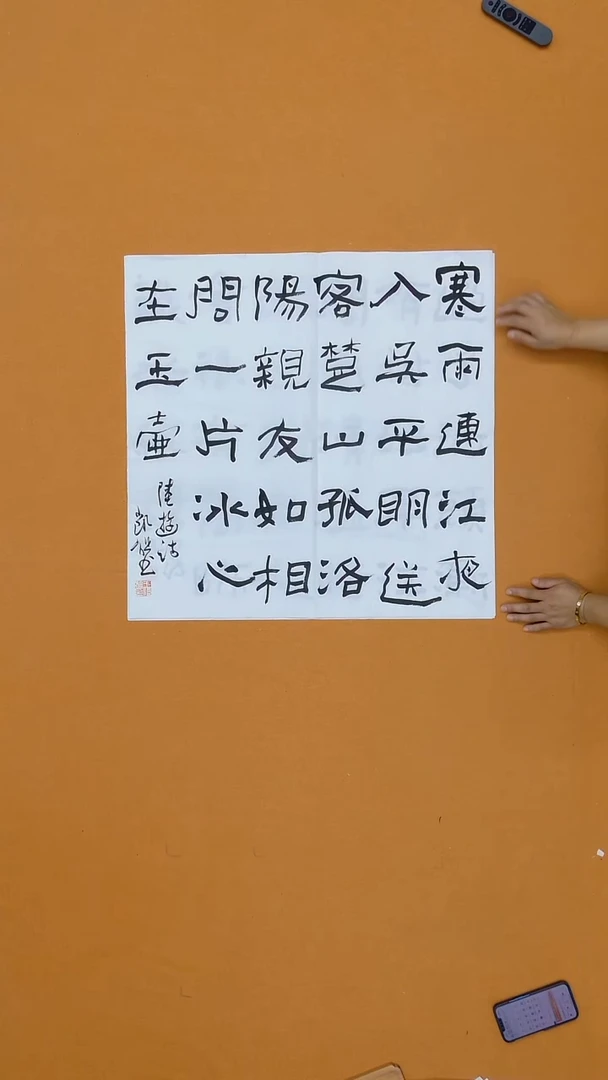 寒雨連江夜
入吳平明送
客楚山孤洛
陽親友如相
問一片冰心
在玉壺
陸遊詩